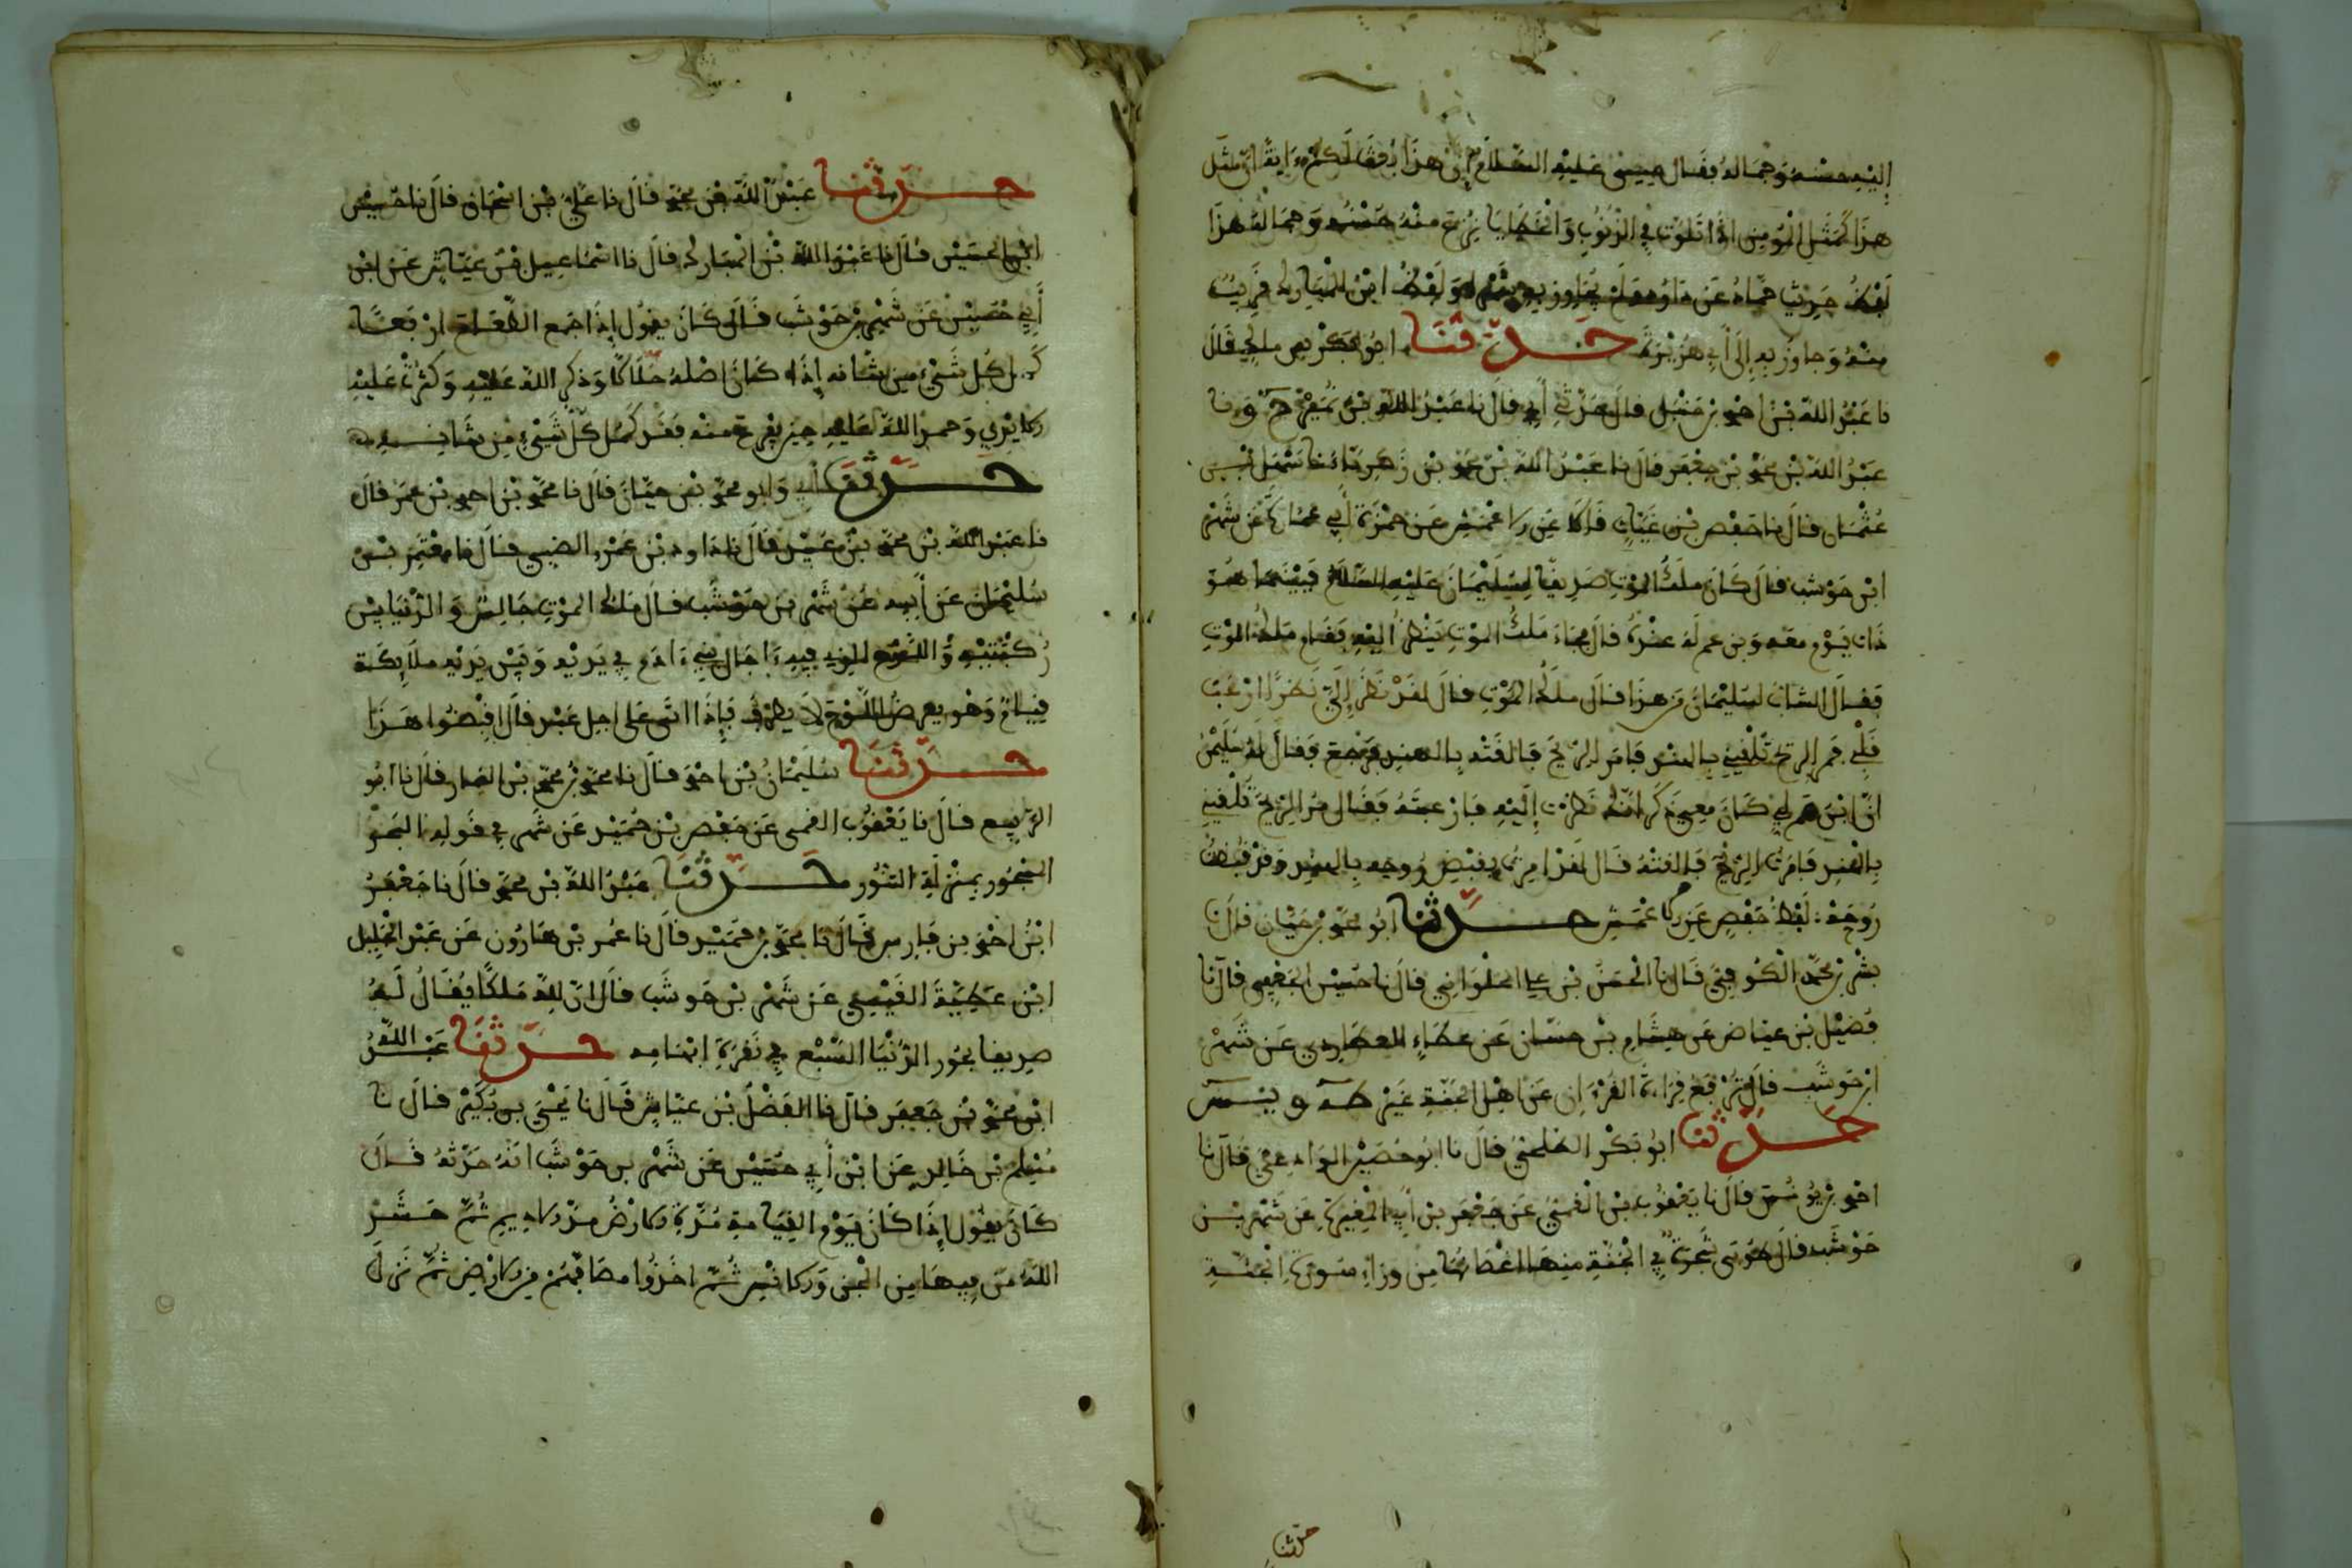 إليه حسنه وجماله فقال عيسى عليه السلام إن هذا بعث لكم ءاية إن مثل
هذا كمثل المؤمن اذا تلوث في الذنوب والخطايا نزع منه حسنه وجماله هذا
لفظ حديث حماد عن داود ولم يجاوز به شهر ولفظ ابن المبارك قريب
منه وجاوز به إلى أبي هريرة حدثنا ابو بكر بن ملك قال
نا عبد الله بن احمد بن حنبل قال حدثني أبي قال نا عبد الله بن نمير ح ونا
عبد الله بن محمد بن جعفر قال نا عبد الله بن محمد بن زكرياء نا سهل بن
عثمان قال نا حفص بن غياث قالا عن الاعمش عن حمزة أبي عمارة عن شهر
ابن حوشب قال كان ملك الموت صديقا لسليمان عليه السلام فبينما هو
ذات يوم معه وبن عم له عنده قال فجاء ملك الموت ينظر اليه فقام ملك الموت
فقال الشاب لسليمان من هذا قال ملك الموت قال لقد نظر إلي نظرا ارعب
قلبي فمر الريح تلقيني بالهند فامر الريح فالقته بالهند فرجع فقال له سليمن
ان ابن عم لي كان معي ذكر انك نظرت إليه فازعجته فقال مر الريح تلقني
بالهند فامرت الريح فالقته قال لقد امرت بقبض روحه بالهند وقد قبضت
روحه لفظ حفص عن الاعمش حدثنا ابو محمد بن حيان قال نا
بشر بن محمد الكوفي قال نا الحسن بن علي الحلواني قال نا حسين الجعفي قال نا
فضيل بن عياض عن هشام بن حسان عن عطاء العطاردي عن شهر
ابن حوشب قال ترفع قراءة القرءان عن اهل الجنة غير طه ويس
حدثنا ابو بكر الطلحي قال نا ابو حصين الوادعي قال نا
احمد بن يونس قال نا يعقوب بن القمي عن جعفر بن أبي المغيرة عن شهر بن
حوشب قال طوبى شجرة في الجنة منها اغصانها من وراء سور الجنة
حدثنا
حدثنا عبد الله بن محمد قال نا علي بن اسحاق قال نا حسين
ابن الحسين قال نا عبد الله بن المبارك قال نا اسماعيل بن عياش عن ابن
أبي حصين عن شهر بن حوشب قال كان يقول إذا جمع الطعام اربعا
كمل كل شيء من شانه إذا كان اصله حلالا وذكر الله عليه وكثرت عليه
الايدي وحمد الله عليه حين يفرغ منه فقد كمل كل شيء من شانه
حدثنا أبي وابو محمد بن حيان قال نا محمد بن احمد بن عمر قال
نا عبد الله بن محمد بن عبيد قال نا داود بن عمرو الضبي قال نا معتمر بن
سليمان عن أبيه عن شهر بن حوشب قال ملك الموت جالس والدنيا بين
ركبتيه واللوح الذي فيه ءاجال بني ءادم في يديه وبين يديه ملائكة
قيام وهو يعرض اللوح لا يطرف فإذا اتى على اجل عبد قال اقبضوا هذا
حدثنا سليمان بن احمد قال نا محمد بن محمد بن الصار قال نا ابو
الربيع قال نا يعقوب القمي عن جعفر بن حميد عن شهر في قوله البحر
المسجور بمنزلة التنور حدثنا عبد الله بن محمد قال نا جعفر
ابن احمد بن فارس قال نا محمد بن حميد قال نا عمر بن هارون عن عبد الجليل
ابن عطية القيسي عن شهر بن حوشب قال ان لله ملكا يقال له
صديقا بحور الدنيا السبع في نقرة ابهامه حدثنا عبد الله
ابن محمد بن جعفر قال نا الفضل بن عباس قال نا يحيى بن بكير قال نا
مسلم بن خالد عن ابن أبي حسين عن شهر بن حوشب انه حدثه قال
كان يقول إذا كان يوم القيامة مدت الارض مد الاديم ثم حشر
الله من فيها من الجن والانس ثم اخذوا مصافهم من الارض ثم نزل